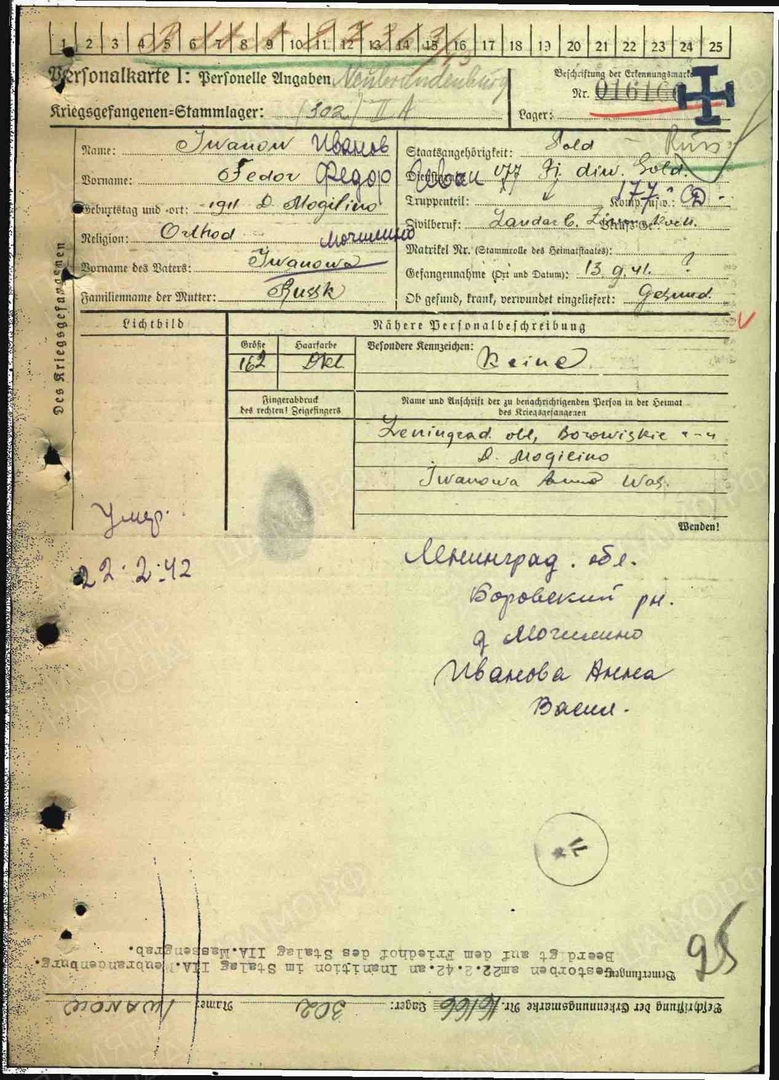 1 2 3 4 5 6 7 8 9 10 11 12 13 14 15 16 17 18 19 20 21 22 23 24 25
Personalkarte I: Personelle Angaben Neubrandenburg
Kriegsgefangenen=Stammlager: (302) II A
Beschriftung der Erkennungsmarke
Nr.
Lager:
Des Kriegsgefangenen
Name: Iwanow Иванов
Vorname: Fedor Федор Иван
Geburtstag und -ort: 1911 D. Mogilino
Religion: Orthod Мочилино
Vorname des Vaters: Iwanowa
Familienname der Mutter: Russk
Staatsangehörigkeit: Sold Russ
077
Truppenteil: 177
Zivilberuf:
Matrikel Nr. (Stammrolle des Heimatstaates):
Gefangennahme (Ort und Datum): 13.9.41. ?
Ob gesund, krank, verwundet eingeliefert: Gesund.
Lichtbild
Nähere Personalbeschreibung
Größe
162
Haarfarbe
Dkl
Besondere Kennzeichen:
Keine
Fingerabdruck
des rechten! Zeigefingers
Name und Anschrift der zu benachrichtigenden Person in der Heimat
des Kriegsgefangenen
Leningrad obl, Borowiskie
D. Mogilino
Iwanowa Anna Was.
Wenden!
Умер.
22.2.42
Ленинград. обл.
Боровский рн.
д Мочилино
Иванова Анна
Васил.
VL
95
Bemerkung: Gestorben am 22.2.42. an Inanition im Stalag IIA. Neubrandenburg.
Beerdigt auf dem Friedhof des Stalag IIA. Massengrab.
Beschriftung der Erkennungsmarke Nr. 16166 Lager: 302 Name: IWANOW